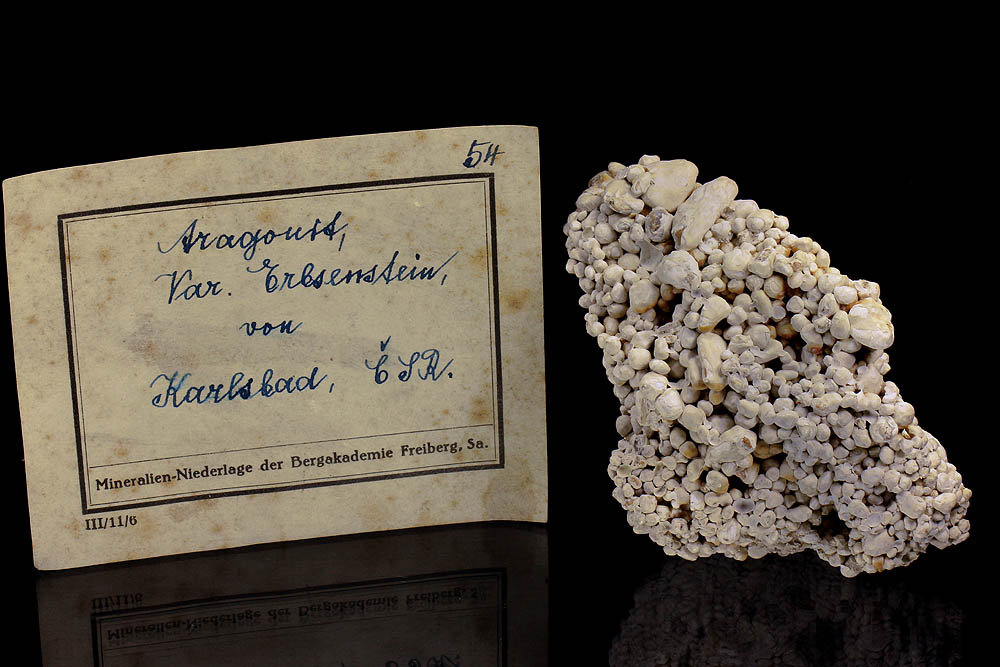 54
Aragonit,
Var. Erbsenstein,
von
Karlsbad, ČSR.
Mineralien-Niederlage der Bergakademie Freiberg, Sa.
III/11/6